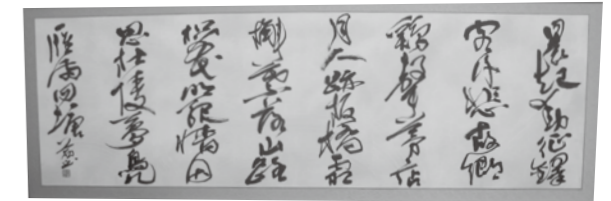 晨起動征鐸
客行悲故鄉
鷄聲茅店
月人跡板橋霜
槲葉落山路
枳花明驛墻因
思杜陵夢鳧
雁滿回塘